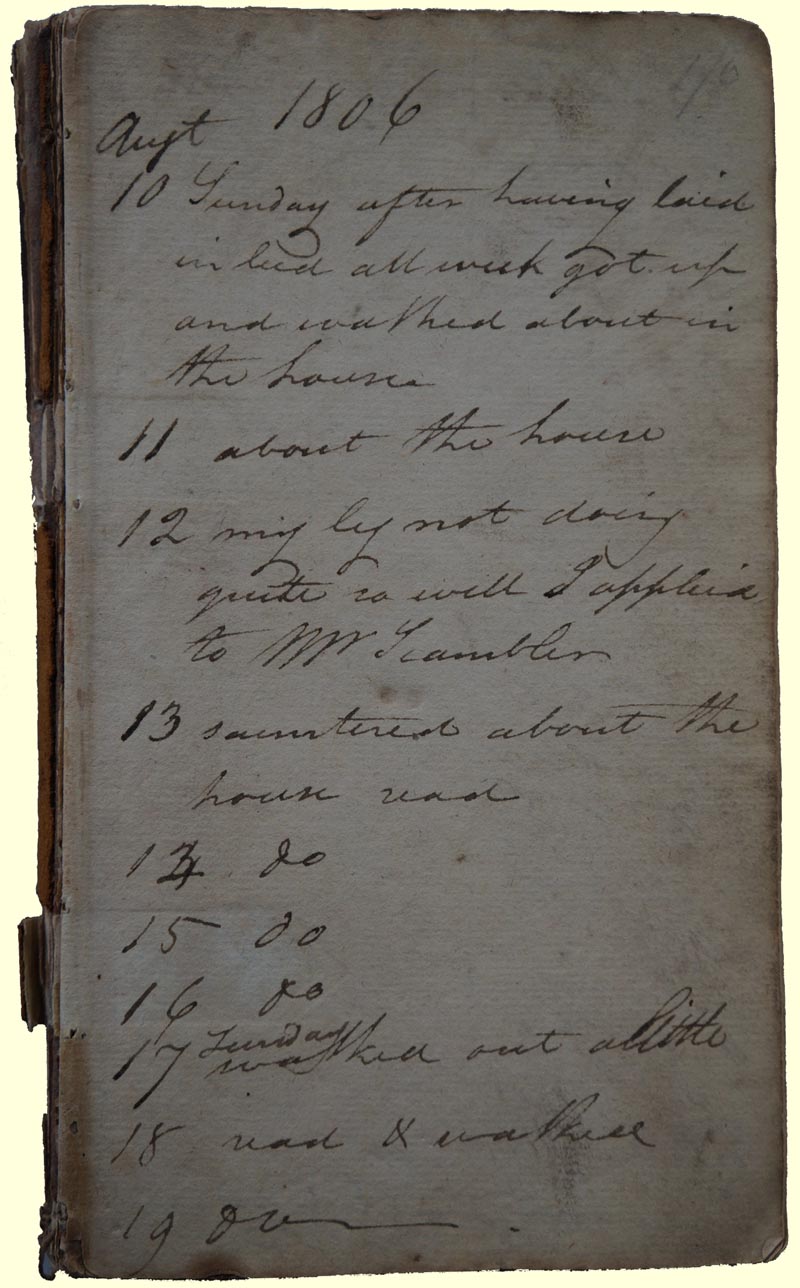 1806
Augt
10 Sunday after having laid
in bed all week got up
and walked about in
the house
11 about the house
12 my leg not doing
quite so well I applied
to Mr Scambler
13 saunterered about the
house read
14 do
15 do
16 do
17 Sunday
walked out a little
18 read & walked
19 do